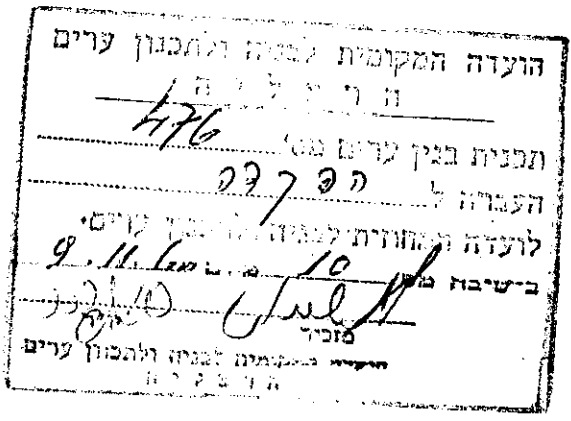 הועדה המקומית לבניה ולתכנון ערים
ה ר צ ל י ה
תכנית בנין ערים מס׳ 476
העברה ל הפקדה
לועדה המחוזית לבניה ולתכנון ערים.
בישיבה מס 10 מיום 9.11
מזכיר
הועדה המקומית לבניה ולתכנון ערים
ה ר צ ל י ה